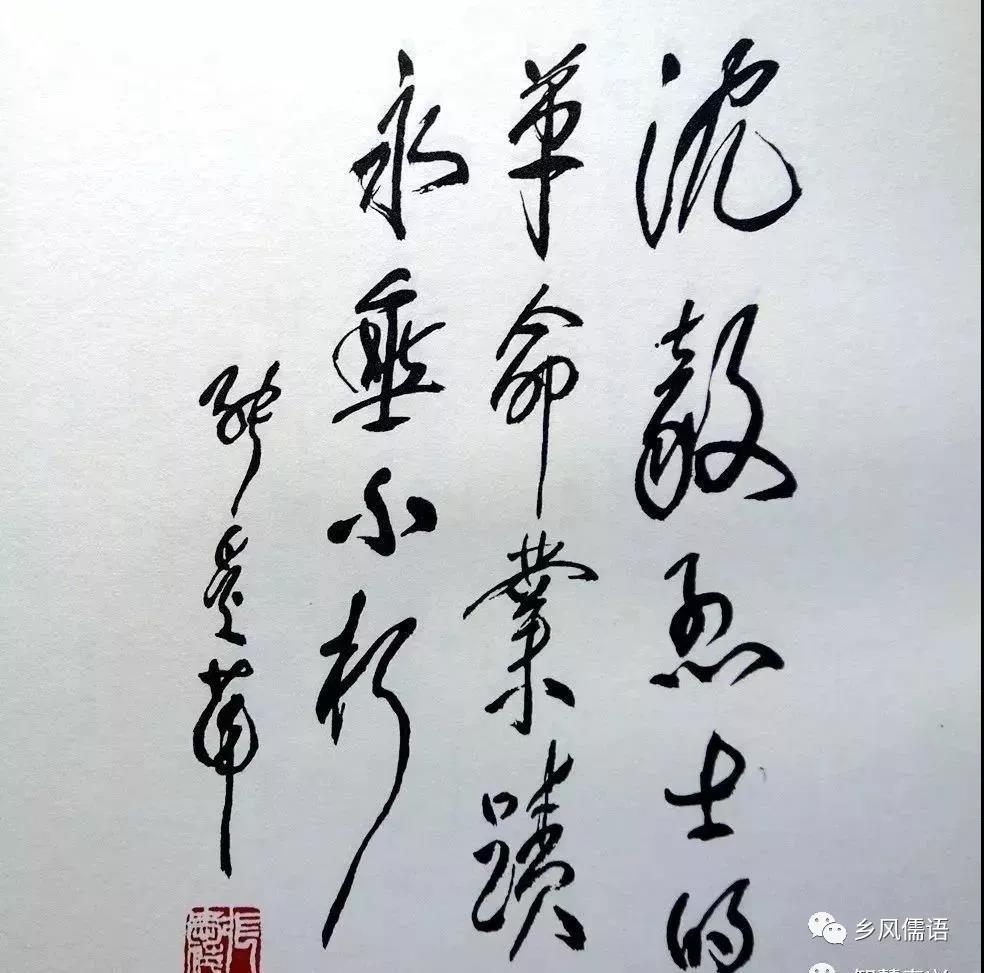 沈毅烈士的
革命業蹟
永垂不朽
張愛萍
乡风儒语